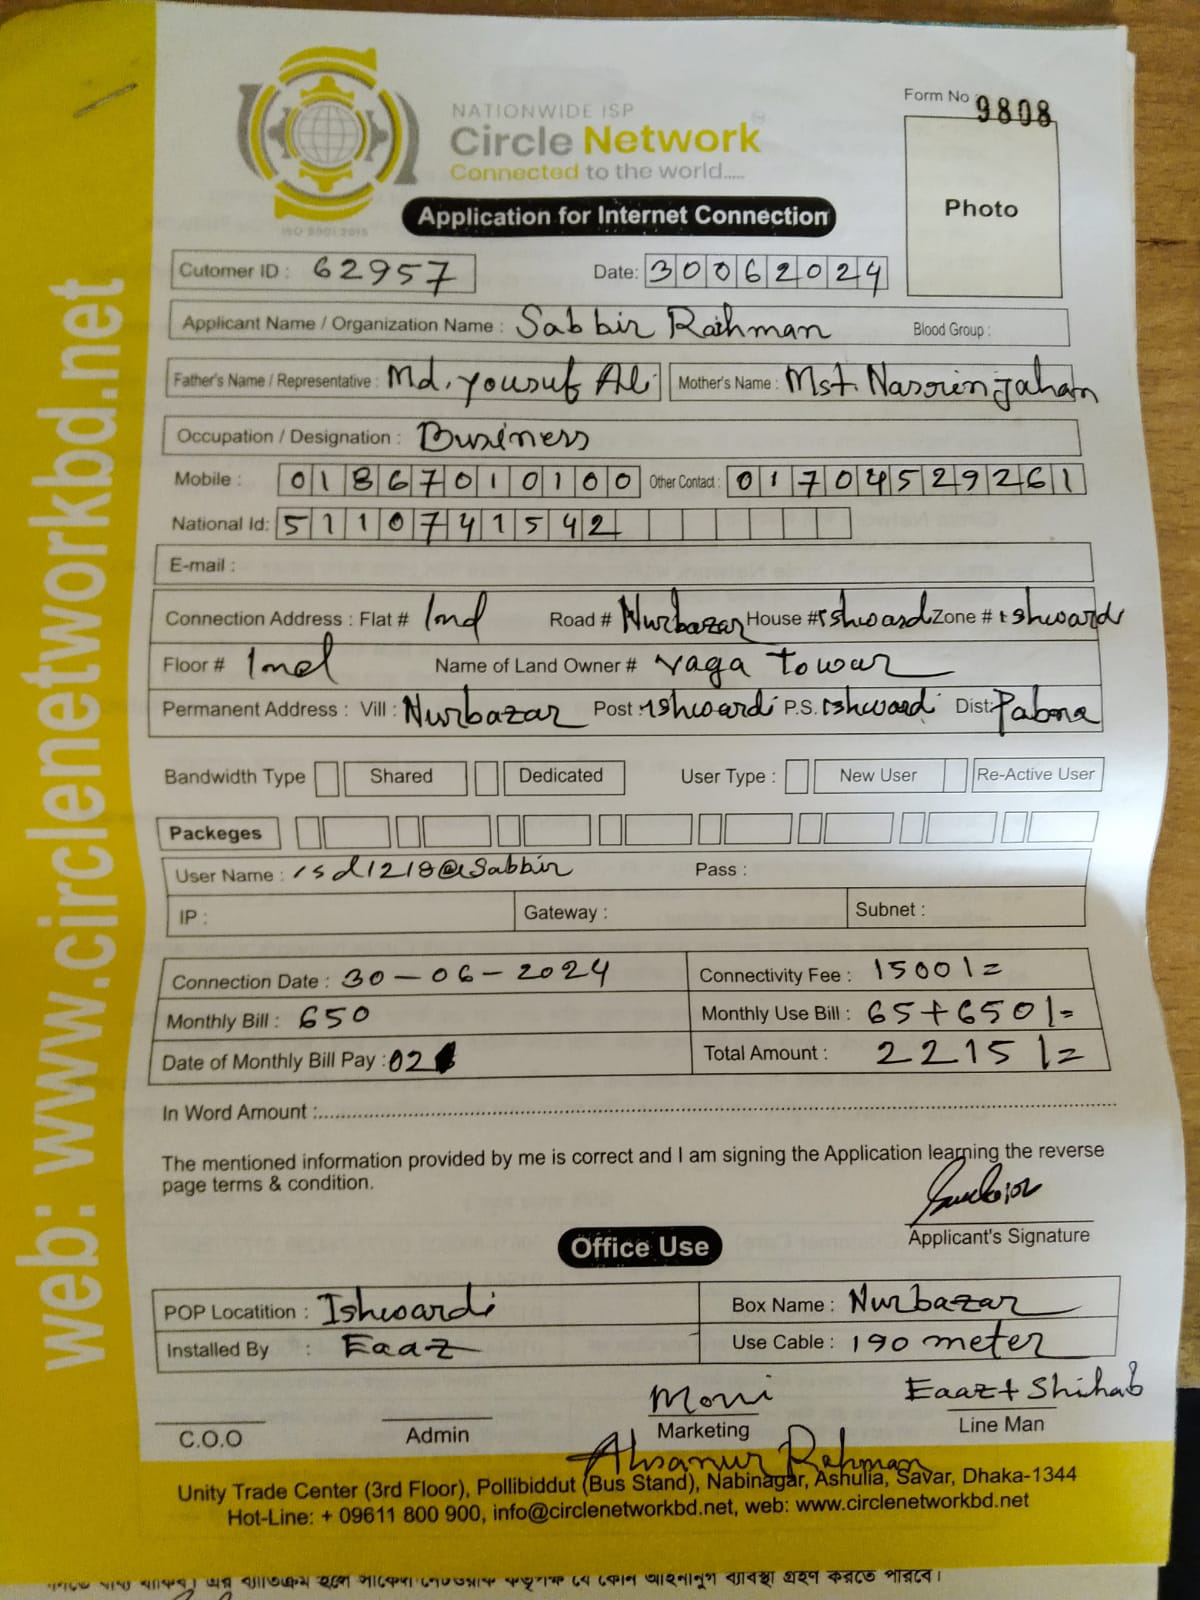 Form No 9808
NATIONWIDE ISP
Circle Network
Connected to the world.....
ISO 9001:2015
Photo
Application for Internet Connection
Cutomer ID : 62957 Date: 30062024
Applicant Name / Organization Name : Sabbir Rahman Blood Group :
Father's Name / Representative : Md. yousuf Ali Mother's Name : Mst. Nasrin jahan
Occupation / Designation : Business
Mobile : 01867010100 Other Contact : 01704529261
National Id: 5110741542
E-mail :
Connection Address : Flat # Road # Nurbazar House # Ishwardi Zone # Ishwardi
Floor # Name of Land Owner # yaga towar
Permanent Address : Vill : Nurbazar Post : Ishwardi P.S. Ishwardi Dist: Pabna
Bandwidth Type Shared Dedicated User Type : New User Re-Active User
Packeges
User Name : isd1218@sabbir Pass :
IP : Gateway : Subnet :
Connection Date : 30-06-2024 Connectivity Fee : 1500/=
Monthly Bill : 650 Monthly Use Bill : 65+650/=
Date of Monthly Bill Pay : 02 Total Amount : 2215/=
In Word Amount :
The mentioned information provided by me is correct and I am signing the Application learning the reverse
page terms & condition.
Applicant's Signature
Office Use
POP Locatition : Ishwardi Box Name : Nurbazar
Installed By : Eaaz Use Cable : 190 meter
Moni Eaaz + Shihab
C.O.O Admin Marketing Line Man
Ahsanur Rahman
Unity Trade Center (3rd Floor), Pollibiddut (Bus Stand), Nabinagar, Ashulia, Savar, Dhaka-1344
Hot-Line: + 09611 800 900, info@circlenetworkbd.net, web: www.circlenetworkbd.net
web: www.circlenetworkbd.net
ব্যবস্থা গ্রহণ করতে পারবে।